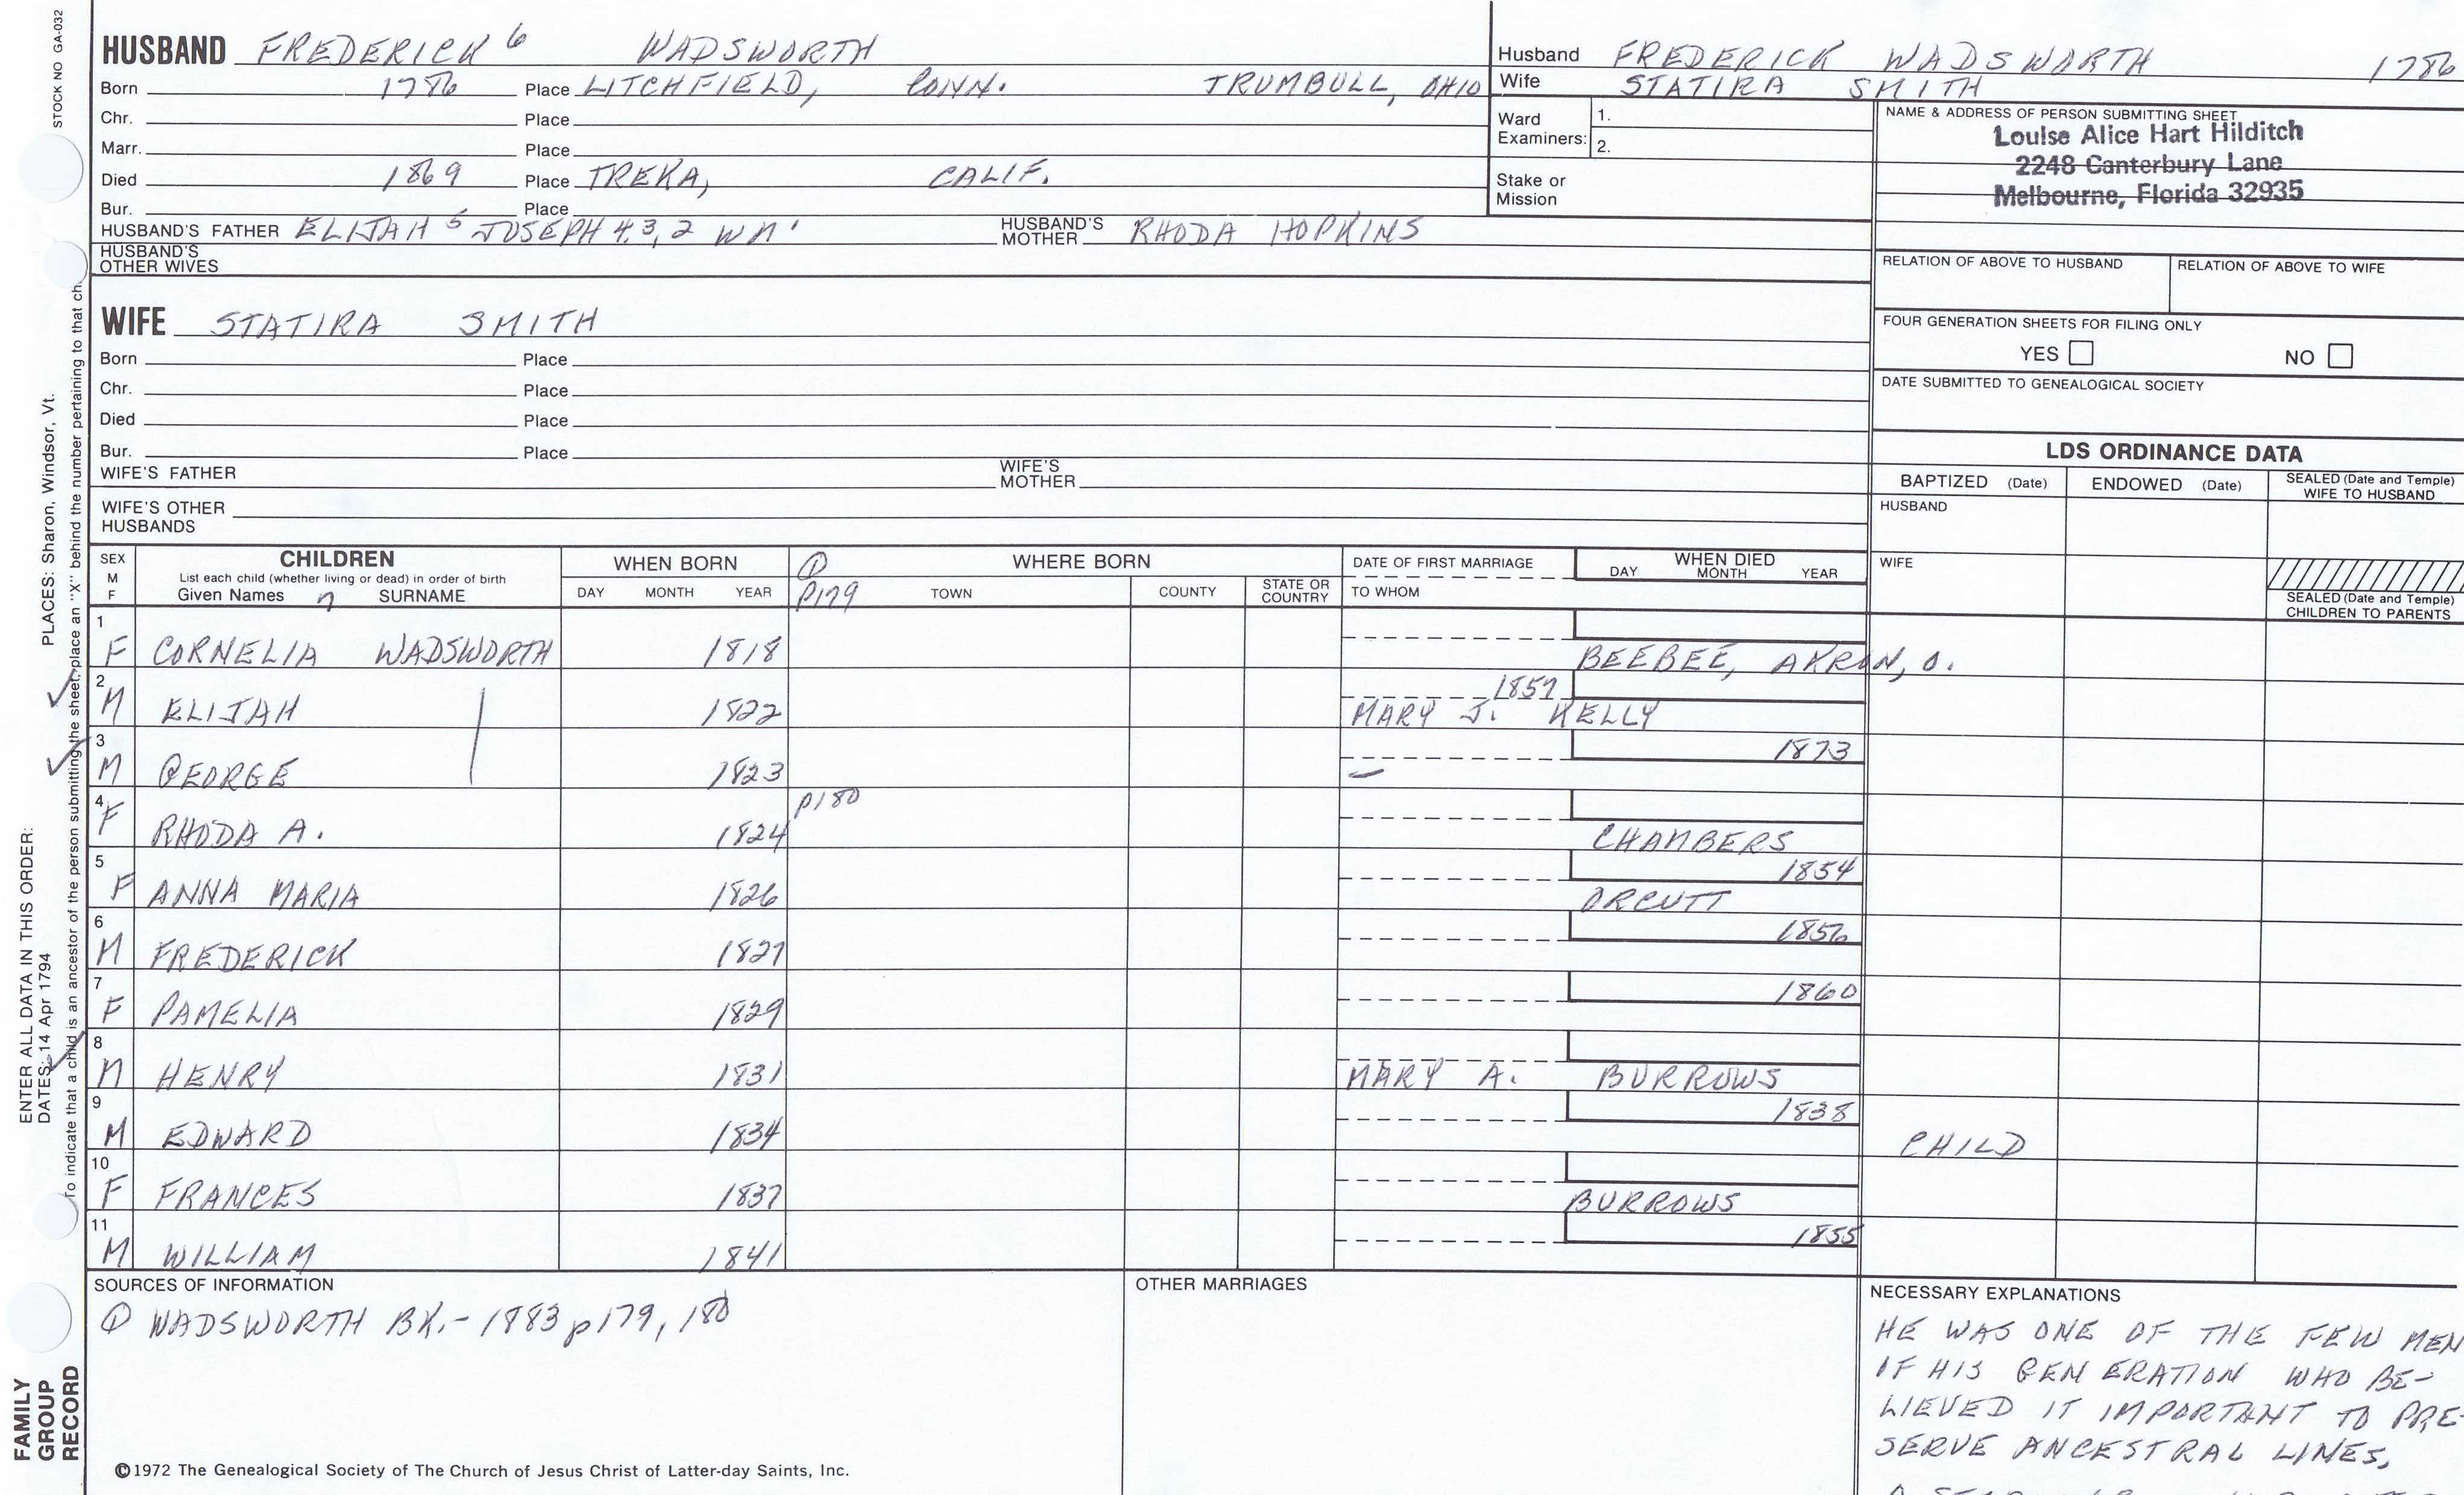 STOCK NO GA-032
HUSBAND FREDERICK 6 WADSWORTH
Born 1786 Place LITCHFIELD, CONN. TRUMBULL, OHIO
Chr. Place
Marr. Place
Died 1869 Place TREKA, CALIF.
Bur. Place
HUSBAND'S FATHER ELIJAH 5 JOSEPH 4,3,2 WM' HUSBAND'S MOTHER RHODA HOPKINS
HUSBAND'S OTHER WIVES
Husband FREDERICK WADSWORTH 1786
Wife STATIRA SMITH
Ward Examiners: 1.
2.
Stake or Mission
NAME & ADDRESS OF PERSON SUBMITTING SHEET
Louise Alice Hart Hilditch
2248 Canterbury Lane
Melbourne, Florida 32935
RELATION OF ABOVE TO HUSBAND RELATION OF ABOVE TO WIFE
FOUR GENERATION SHEETS FOR FILING ONLY
YES NO
DATE SUBMITTED TO GENEALOGICAL SOCIETY
WIFE STATIRA SMITH
Born Place
Chr. Place
Died Place
Bur. Place
WIFE'S FATHER WIFE'S MOTHER
WIFE'S OTHER HUSBANDS
LDS ORDINANCE DATA
BAPTIZED (Date) ENDOWED (Date) SEALED (Date and Temple) WIFE TO HUSBAND
HUSBAND
WIFE
SEALED (Date and Temple) CHILDREN TO PARENTS
SEX M F CHILDREN WHEN BORN ① WHERE BORN DATE OF FIRST MARRIAGE WHEN DIED
List each child (whether living or dead) in order of birth
Given Names 7 SURNAME DAY MONTH YEAR P179 TOWN COUNTY STATE OR COUNTRY TO WHOM DAY MONTH YEAR
1 F CORNELIA WADSWORTH 1818 BEEBEE, AKRON, O.
2 M ELIJAH 1822 1857 MARY J. KELLY
3 M GEORGE 1823 — 1873
4 F RHODA A. 1824 p180 CHAMBERS
5 F ANNA MARIA 1826 ORCUTT 1854
6 M FREDERICK 1827 1856
7 F PAMELIA 1829 1860
8 M HENRY 1831 MARY A. BURROWS
9 M EDWARD 1834 1838 CHILD
10 F FRANCES 1837 BURROWS
11 M WILLIAM 1841 1855
SOURCES OF INFORMATION
① WADSWORTH BK.- 1883 p179, 180
OTHER MARRIAGES
NECESSARY EXPLANATIONS
HE WAS ONE OF THE FEW MEN
OF HIS GENERATION WHO BE-
LIEVED IT IMPORTANT TO PRE-
SERVE ANCESTRAL LINES,
©1972 The Genealogical Society of The Church of Jesus Christ of Latter-day Saints, Inc.
FAMILY GROUP RECORD
ENTER ALL DATA IN THIS ORDER:
DATES: 14 Apr 1794
PLACES: Sharon, Windsor, Vt.
To indicate that a child is an ancestor of the person submitting the sheet, place an "X" behind the number pertaining to that ch